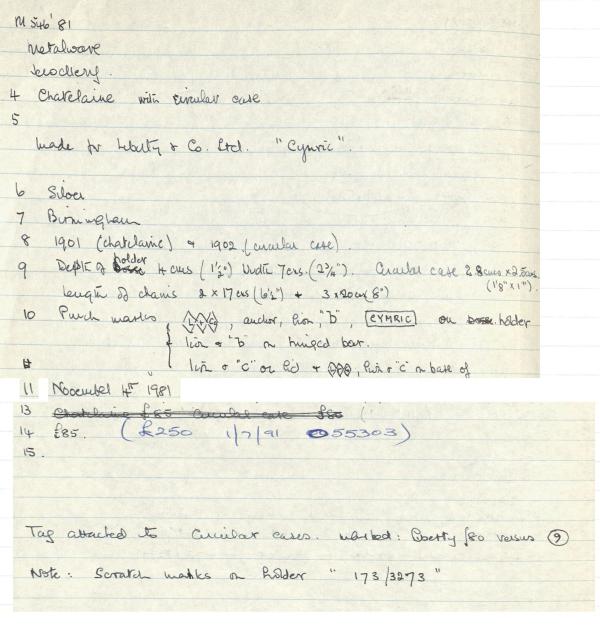 M 546 '81
Metalware
Jewellery.
4 Chatelaine with circular case
5
Made for Liberty & Co. Ltd. "Cymric".
6 Silver
7 Birmingham
8 1901 (chatelaine) & 1902 (circular case).
9 Depth of holder 4 cms (1½") Width 7cms. (2¾"). Circular case 2.8cms x 2.5cms.
(1⅛" x 1").
Length of chains 2 x 17cms (6½") + 3 x 20cms (8")
10 Punch marks L & C, anchor, lion, "b", CYMRIC on holder
lion & "b" on hinged bar.
lion & "c" on lid + , lion & "c" on base of
11 November 4th 1981
13 Chatelaine £85 Circular case £80
14 £85. (£250 1/7/91 55303)
15.
Tag attached to circular cases. marked: Liberty £80 versus 9
Note: Scratch marks on holder "173/3273"